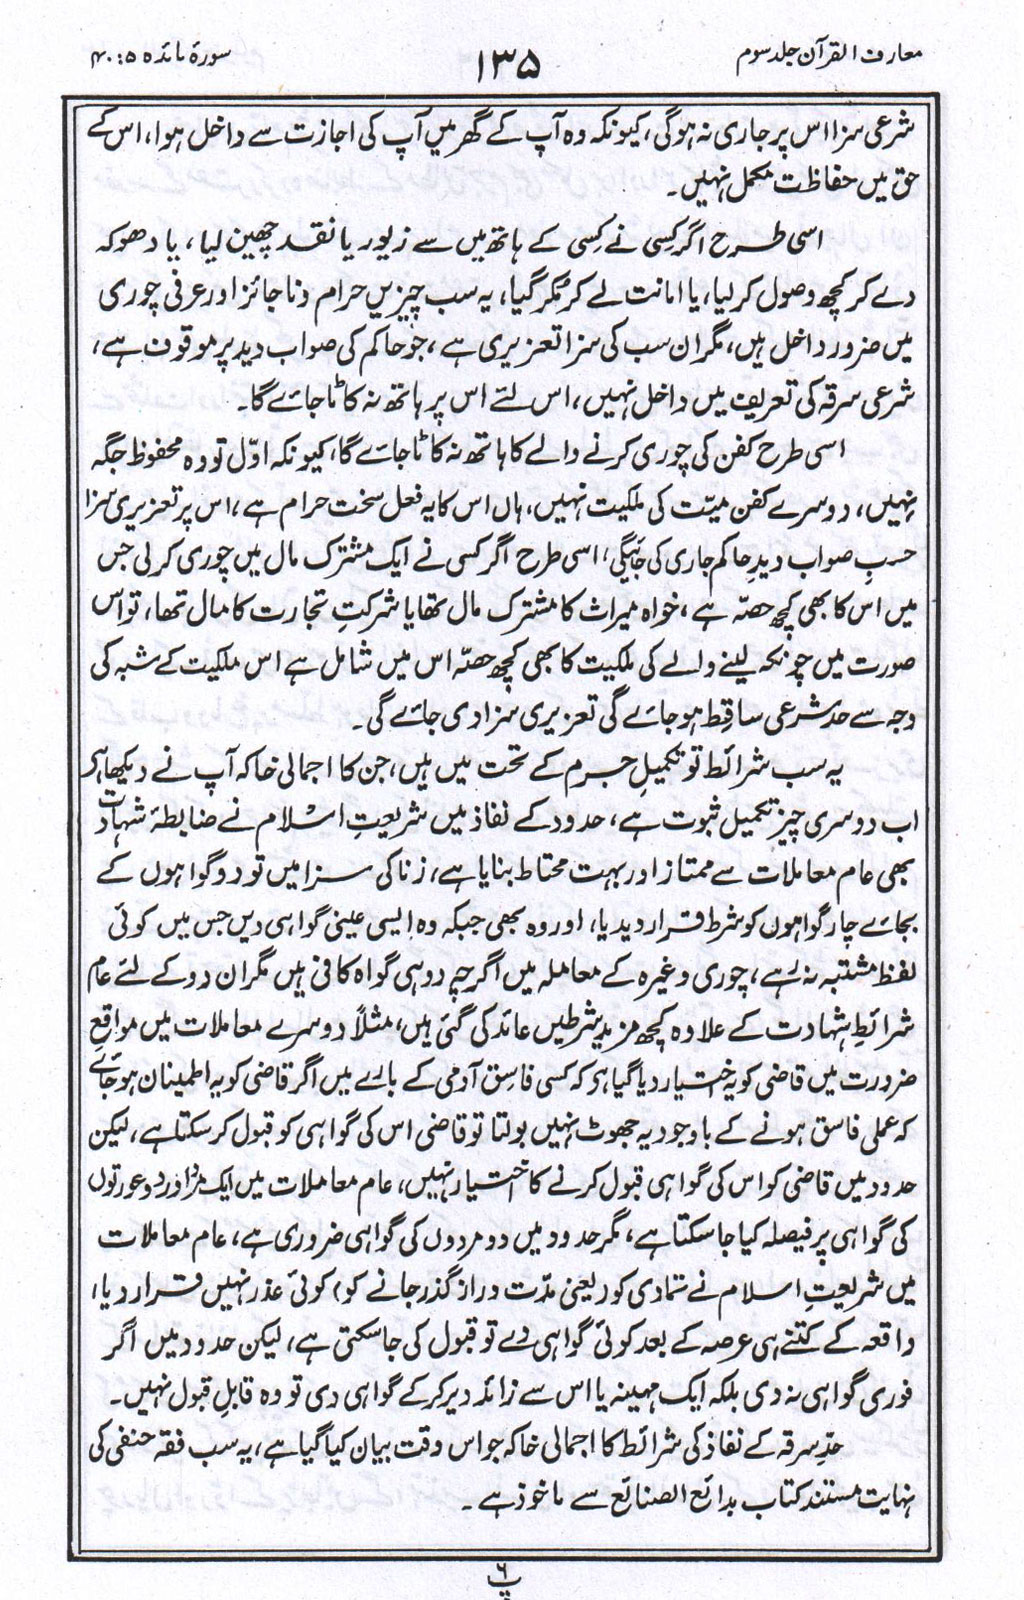 معارف القرآن جلد سوم
۱۳۵
سورۂ مائدہ ۵ : ۴۰
شرعی سزا اس پر جاری نہ ہوگی، کیونکہ وہ آپ کے گھر میں آپ کی اجازت سے داخل ہوا، اس کے
حق میں حفاظت مکمل نہیں۔
اسی طرح اگر کسی نے کسی کے ہاتھ میں سے زیور یا نقد چھین لیا، یا دھوکہ
دے کر کچھ وصول کرلیا، یا امانت لے کر مُکر گیا، یہ سب چیزیں حرام و ناجائز اور عرفی چوری
میں ضرور داخل ہیں، مگر ان سب کی سزا تعزیری ہے، جو حاکم کی صواب دید پر موقوف ہے،
شرعی سرقہ کی تعریف میں داخل نہیں، اس لئے اس پر ہاتھ نہ کاٹا جائے گا۔
اسی طرح کفن کی چوری کرنے والے کا ہاتھ نہ کاٹا جائے گا، کیونکہ اوّل تو وہ محفوظ جگہ
نہیں، دوسرے کفن میّت کی ملکیت نہیں، ہاں اس کا یہ فعل سخت حرام ہے، اس پر تعزیری سزا
حسبِ صواب دیدِ حاکم جاری کی جائیگی، اسی طرح اگر کسی نے ایک مشترک مال میں چوری کرلی جس
میں اس کا بھی کچھ حصّہ ہے، خواہ میراث کا مشترک مال تھا یا شرکتِ تجارت کا مال تھا، تو اس
صورت میں چونکہ لینے والے کی ملکیت کا بھی کچھ حصّہ اس میں شامل ہے اس ملکیت کے شبہ کی
وجہ سے حدّ شرعی ساقط ہوجائے گی تعزیری سزا دی جائے گی۔
یہ سب شرائط تو تکمیلِ جرم کے تحت میں ہیں، جن کا اجمالی خاکہ آپ نے دیکھا ہے
اب دوسری چیز تکمیلِ ثبوت ہے، حدود کے نفاذ میں شریعتِ اسلام نے ضابطۂ شہادت
بھی عام معاملات سے ممتاز اور بہت محتاط بنایا ہے، زنا کی سزا میں تو دو گواہوں کے
بجائے چار گواہوں کو شرط قرار دیدیا، اور وہ بھی جبکہ وہ ایسی عینی گواہی دیں جس میں کوئی
لفظ مشتبہ نہ رہے، چوری وغیرہ کے معاملہ میں اگرچہ دو ہی گواہ کافی ہیں مگر ان دو کے لئے عام
شرائطِ شہادت کے علاوہ کچھ مزید شرطیں عائد کی گئی ہیں، مثلاً دوسرے معاملات میں مواقعِ
ضرورت میں قاضی کو یہ اختیار دیا گیا ہے کہ کسی فاسق آدمی کے بارے میں اگر قاضی کو یہ اطمینان ہوجائے
کہ عملی فاسق ہونے کے باوجود یہ جھوٹ نہیں بولتا تو قاضی اس کی گواہی کو قبول کرسکتا ہے، لیکن
حدود میں قاضی کو اس کی گواہی قبول کرنے کا اختیار نہیں، عام معاملات میں ایک مرد اور دو عورتوں
کی گواہی پر فیصلہ کیا جاسکتا ہے، مگر حدود میں دو مردوں کی گواہی ضروری ہے، عام معاملات
میں شریعتِ اسلام نے تمادی کو (یعنی مدّت دراز گذر جانے کو) کوئی عذر نہیں قرار دیا،
واقعہ کے کتنے ہی عرصہ کے بعد کوئی گواہی دے تو قبول کی جاسکتی ہے، لیکن حدود میں اگر
فوری گواہی نہ دی بلکہ ایک مہینہ یا اس سے زائد دیر کرکے گواہی دی تو وہ قابلِ قبول نہیں۔
حدِ سرقہ کے نفاذ کی شرائط کا اجمالی خاکہ جو اس وقت بیان کیا گیا ہے، یہ سب فقہ حنفی کی
نہایت مستند کتاب بدائع الصنائع سے ماخوذ ہے۔
پ ۶